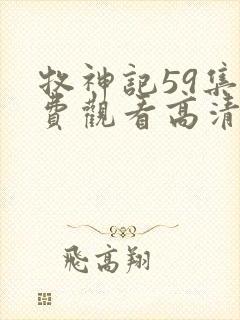 牧神記59集
費觀看高清
飛高翔